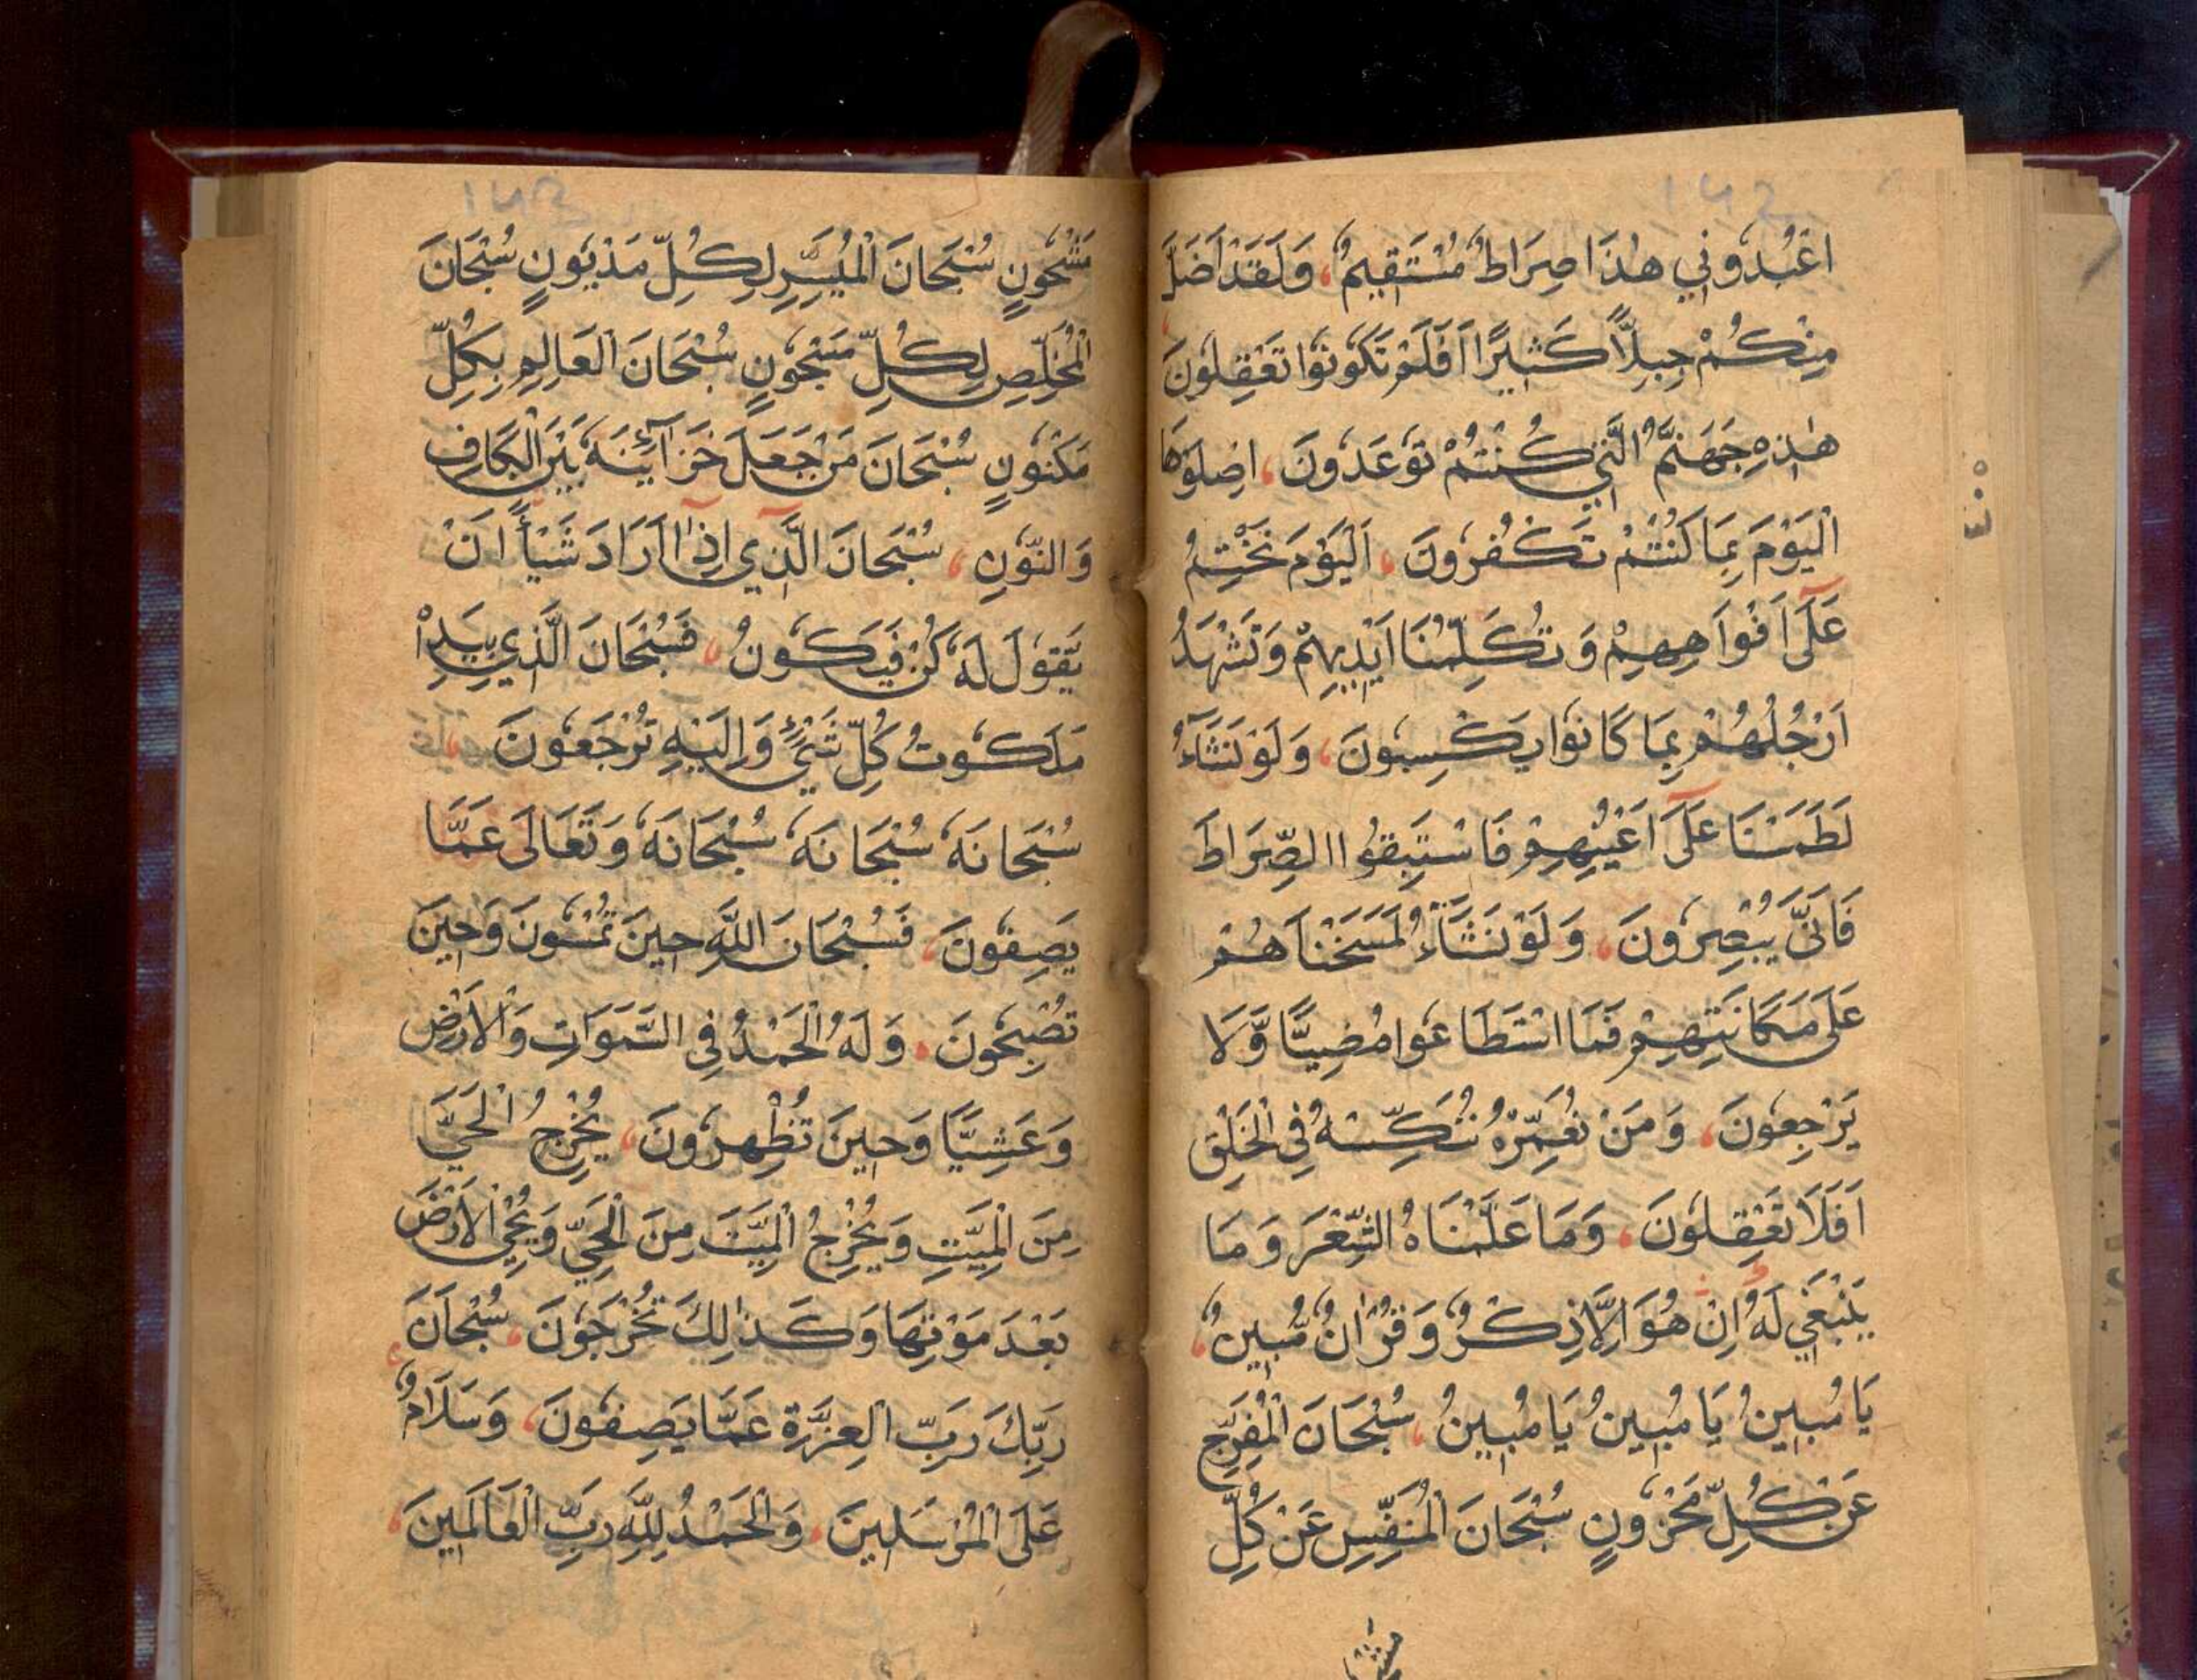 142
اعْبُدُونِي هٰذَا صِرَاطٌ مُسْتَقِيمٌ، وَلَقَدْ اَضَلَّ
مِنْكُمْ جِبِلًّا كَثِيرًا اَفَلَمْ تَكُونُوا تَعْقِلُونَ
هٰذِهِ جَهَنَّمُ الَّتِي كُنْتُمْ تُوعَدُونَ، اِصْلَوْهَا
الْيَوْمَ بِمَا كُنْتُمْ تَكْفُرُونَ، اَلْيَوْمَ نَخْتِمُ
عَلَى اَفْوَاهِهِمْ وَتُكَلِّمُنَا اَيْدِيهِمْ وَتَشْهَدُ
اَرْجُلُهُمْ بِمَا كَانُوا يَكْسِبُونَ، وَلَوْ نَشَآءُ
لَطَمَسْنَا عَلَى اَعْيُنِهِمْ فَاسْتَبِقُوا الصِّرَاطَ
فَاَنَّى يُبْصِرُونَ، وَلَوْ نَشَآءُ لَمَسَخْنَاهُمْ
عَلَى مَكَانَتِهِمْ فَمَا اسْتَطَاعُوا مُضِيًّا وَّلَا
يَرْجِعُونَ، وَمَنْ نُعَمِّرْهُ نُنَكِّسْهُ فِي الْخَلْقِ
اَفَلَا تَعْقِلُونَ، وَمَا عَلَّمْنَاهُ الشِّعْرَ وَمَا
يَنْبَغِي لَهُ اِنْ هُوَ اِلَّا ذِكْرٌ وَقُرْاٰنٌ مُّبِينٌ،
يَا مُبِينُ يَا مُبِينُ يَا مُبِينُ، سُبْحَانَ الْمُفَرِّجِ
عَنْ كُلِّ مَحْزُونٍ سُبْحَانَ الْمُنَفِّسِ عَنْ كُلِّ
143
مَشْحُونٍ سُبْحَانَ الْمُيَسِّرِ لِكُلِّ مَدْيُونٍ سُبْحَانَ
الْمُخَلِّصِ لِكُلِّ مَسْجُونٍ سُبْحَانَ الْعَالِمِ بِكُلِّ
مَكْنُونٍ سُبْحَانَ مَنْ جَعَلَ خَزَآئِنَهُ بَيْنَ الْكَافِ
وَالنُّونِ، سُبْحَانَ الَّذِي اِذَا اَرَادَ شَيْأً اَنْ
يَقُولَ لَهُ كُنْ فَيَكُونُ، فَسُبْحَانَ الَّذِي بِيَدِهِ
مَلَكُوتُ كُلِّ شَيْءٍ وَاِلَيْهِ تُرْجَعُونَ،
سُبْحَانَهُ سُبْحَانَهُ سُبْحَانَهُ وَتَعَالَى عَمَّا
يَصِفُونَ، فَسُبْحَانَ اللّٰهِ حِينَ تُمْسُونَ وَحِينَ
تُصْبِحُونَ، وَلَهُ الْحَمْدُ فِي السَّمَوَاتِ وَالْاَرْضِ
وَعَشِيًّا وَحِينَ تُظْهِرُونَ، يُخْرِجُ الْحَيَّ
مِنَ الْمَيِّتِ وَيُخْرِجُ الْمَيِّتَ مِنَ الْحَيِّ وَيُحْيِ الْاَرْضَ
بَعْدَ مَوْتِهَا وَكَذٰلِكَ تُخْرَجُونَ، سُبْحَانَ
رَبِّكَ رَبِّ الْعِزَّةِ عَمَّا يَصِفُونَ، وَسَلَامٌ
عَلَى الْمُرْسَلِينَ، وَالْحَمْدُ لِلّٰهِ رَبِّ الْعَالَمِينَ،